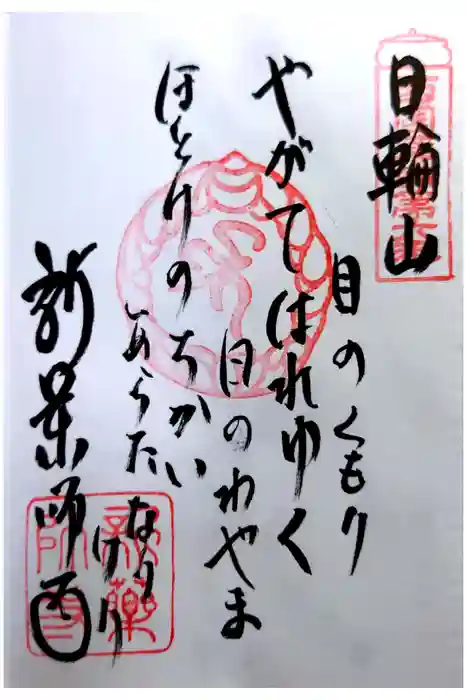 日輪山
目のくもり
やがてはれゆく
日のわやま
ほとけのちかい
あらたなりけり
新薬師寺
新薬師寺